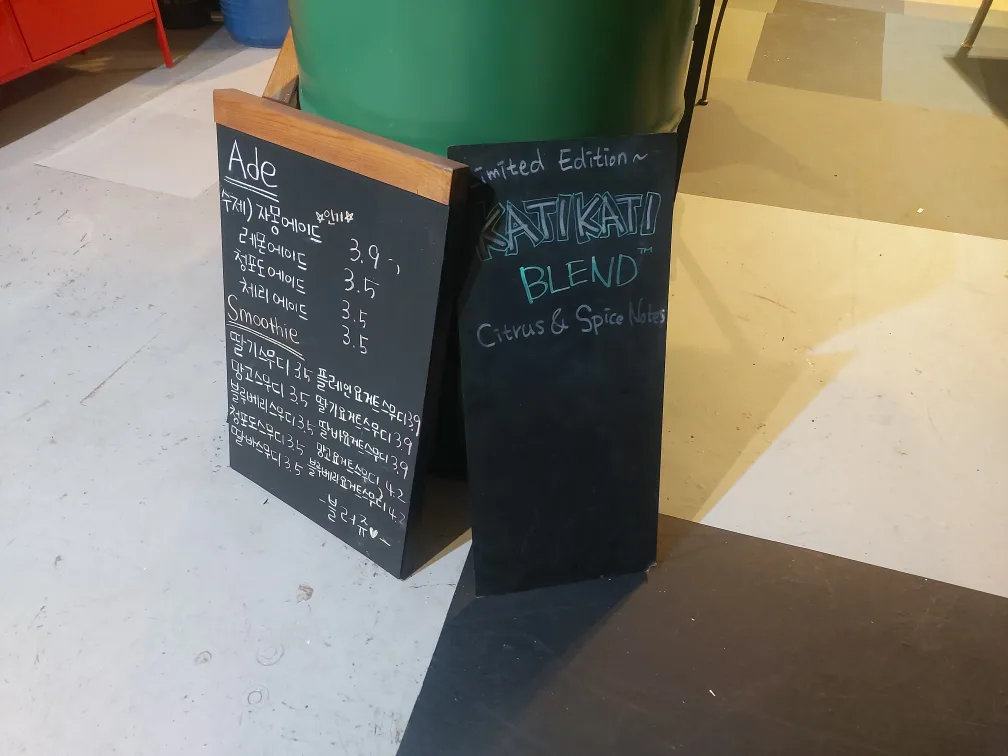 Ade
☆인기☆
수제) 자몽에이드 3.9
레몬에이드 3.5
청포도에이드 3.5
체리에이드 3.5
Smoothie
딸기스무디 3.5 플레인요거트스무디 3.9
망고스무디 3.5 딸기요거트스무디 3.9
블루베리스무디 3.5 딸바요거트스무디 3.9
청포도스무디 3.5 망고요거트스무디 4.2
딸바스무디 3.5 블루베리요거트스무디 4.2
-블러쥬♥-
imited Edition~
KATIKATI
BLEND™
Citrus & Spice Notes